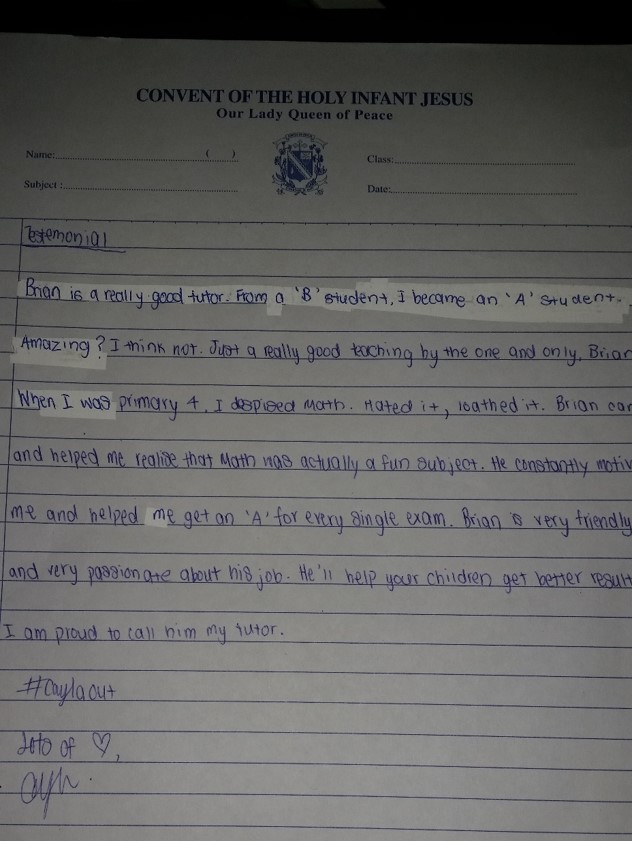 CONVENT OF THE HOLY INFANT JESUS
Our Lady Queen of Peace
Name: ( ) Class:
Subject : Date:
Testemonial
Brian is a really good tutor. From a 'B' student, I became an 'A' student.
Amazing? I think not. Just a really good teaching by the one and only, Brian
When I was primary 4, I despised Math. Hated it, loathed it. Brian cam
and helped me realise that Math was actually a fun subject. He constantly motiv
me and helped me get an 'A' for every single exam. Brian is very friendly
and very passionate about his job. He'll help your children get better result
I am proud to call him my tutor.
#Caylaout
Lots of ♡,